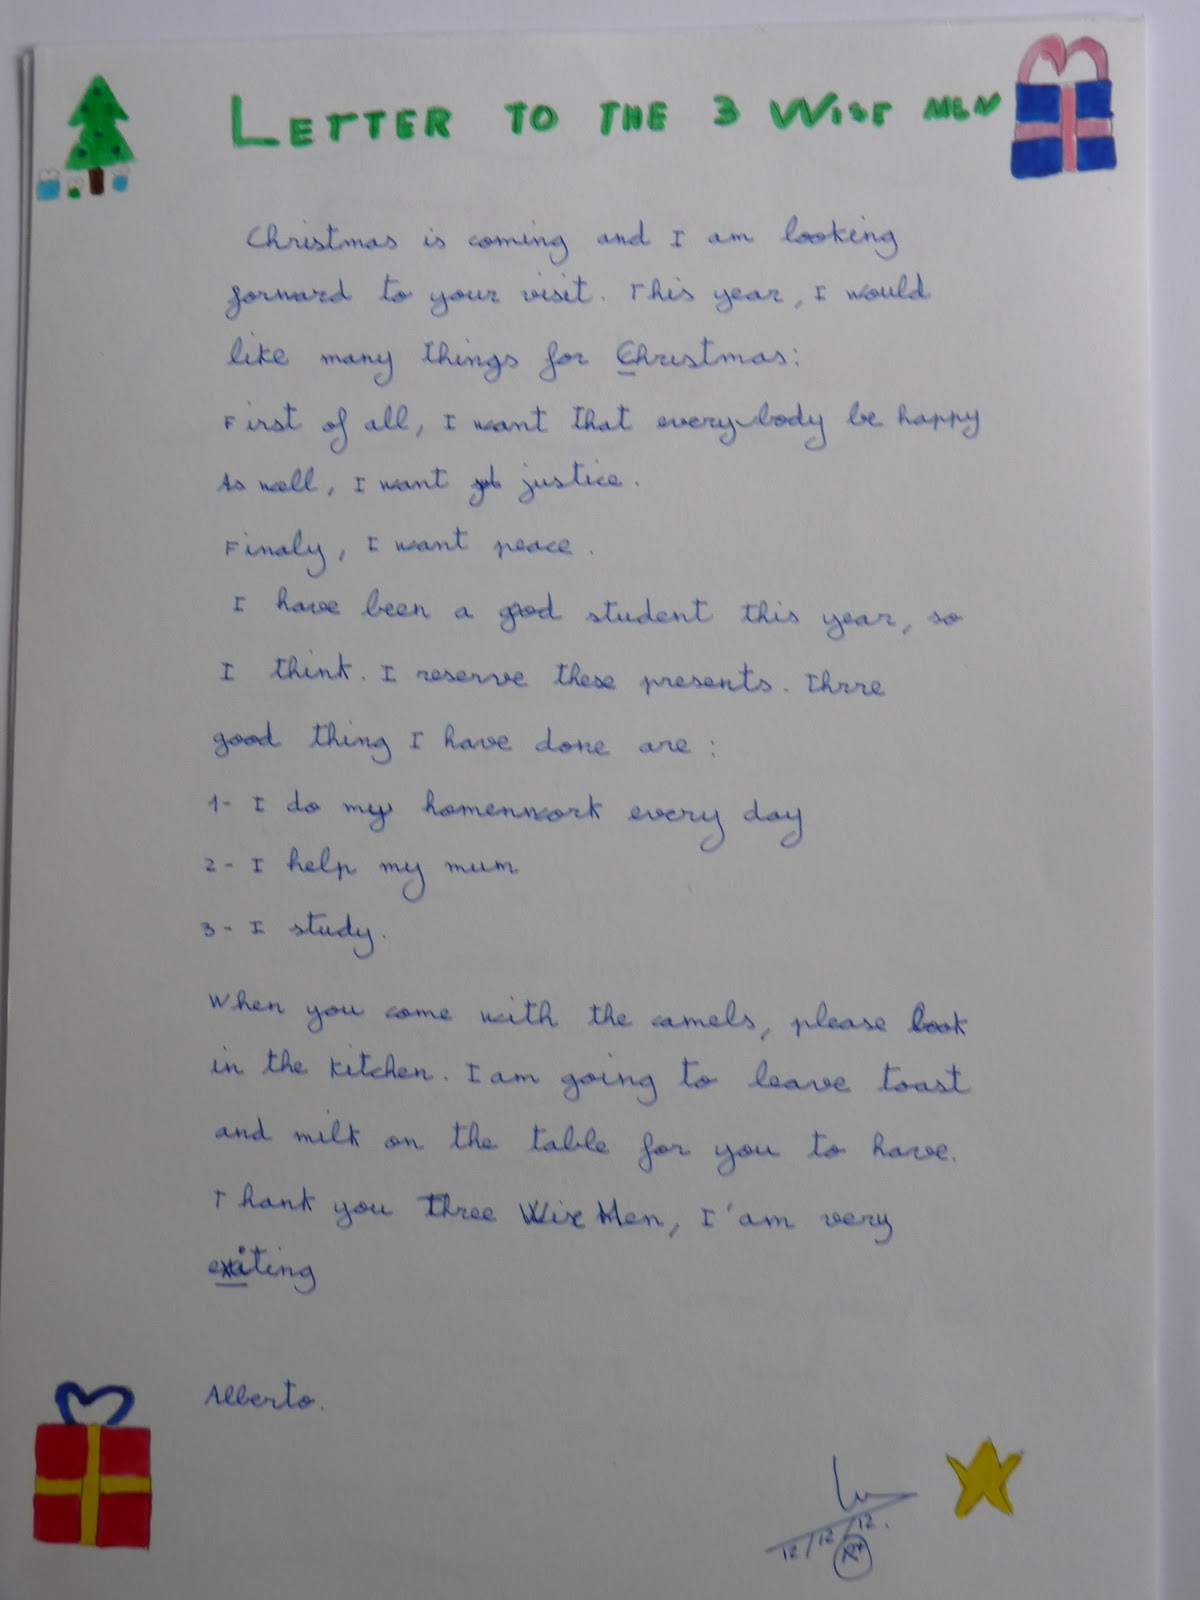 LETTER TO THE 3 WISE MEN
Christmas is coming and I am looking
forward to your visit. This year, I would
like many things for Christmas:
First of all, I want that everybody be happy
As well, I want justice.
Finaly, I want peace.
I have been a good student this year, so
I think. I reserve these presents. Three
good thing I have done are:
1- I do my homenwork every day
2- I help my mum
3- I study.
When you come with the camels, please look
in the kitchen. I am going to leave toast
and milk on the table for you to have.
Thank you three Wise Men, I'am very
exiting
Alberto.
12/12/12.